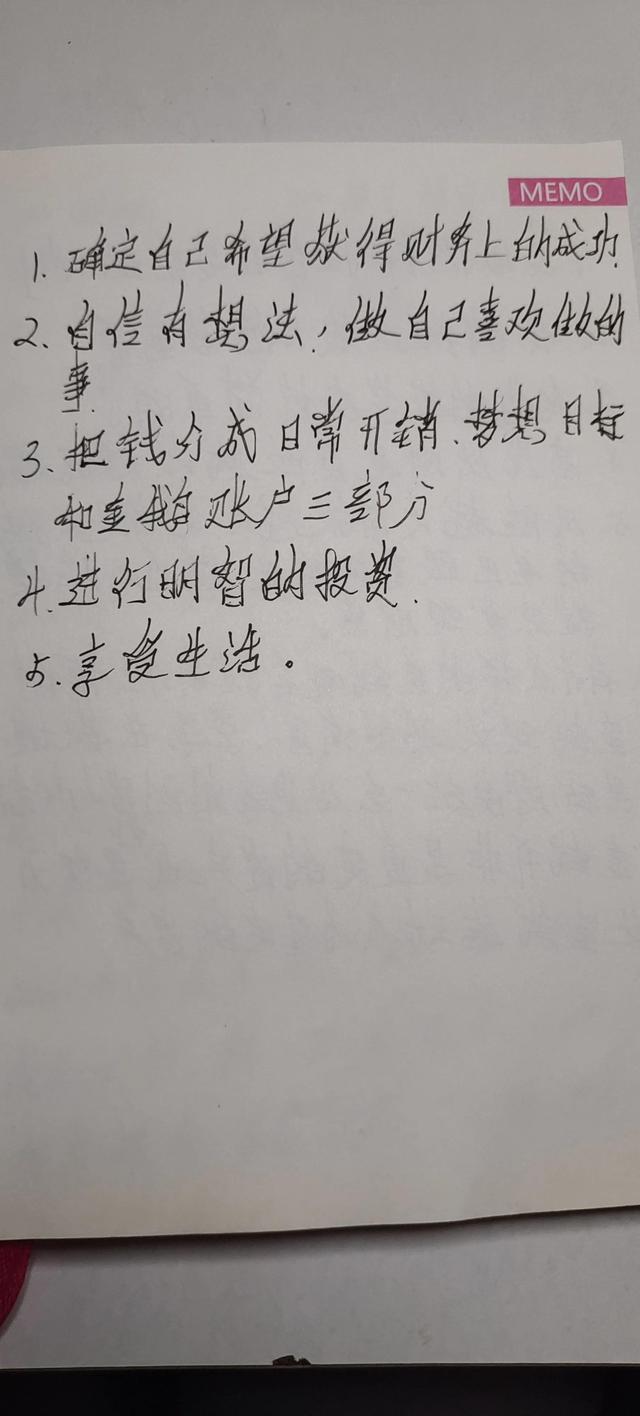 MEMO
1. 确定自己希望获得财务上的成功.
2. 自信有想法, 做自己喜欢做的
事.
3. 把钱分成日常开销、梦想目标
和金鹅账户三部分
4. 进行明智的投资.
5. 享受生活。